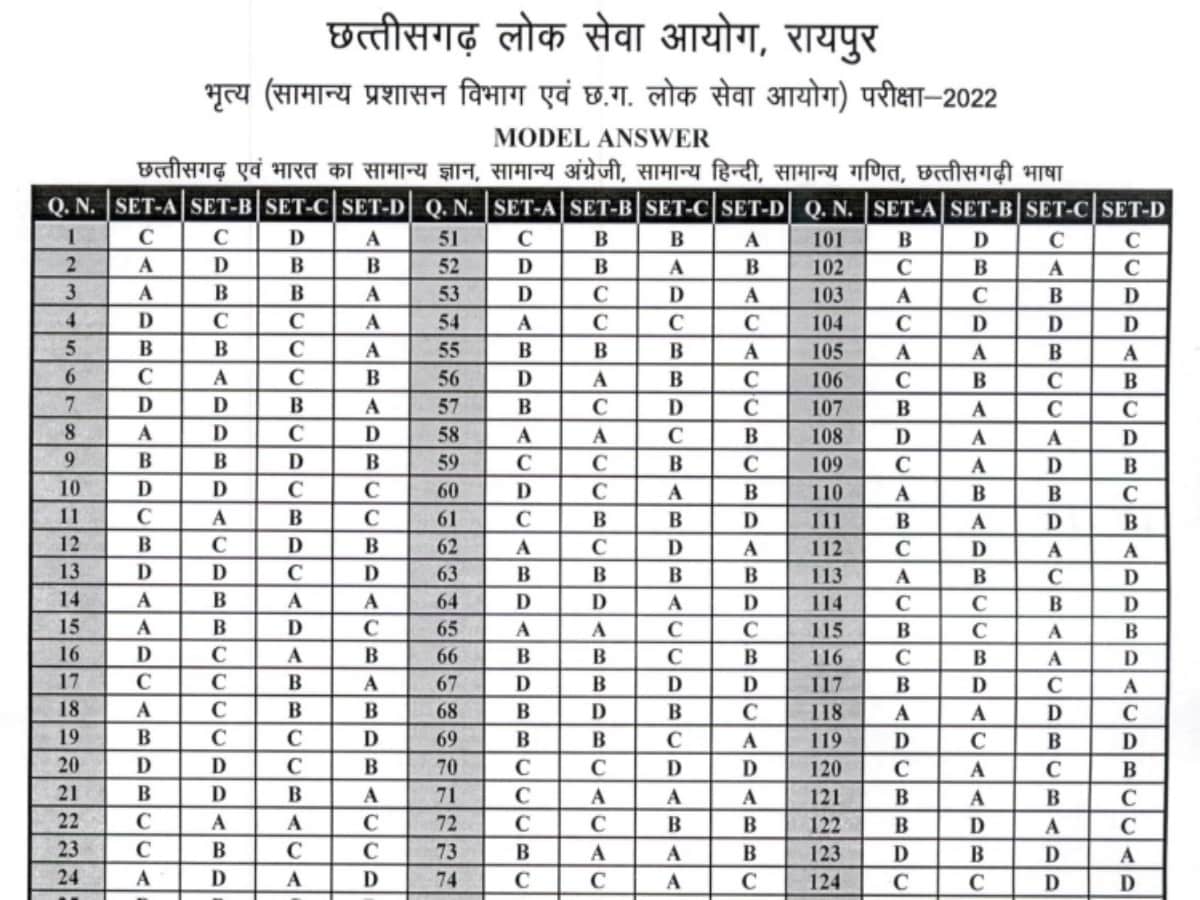 छत्तीसगढ़ लोक सेवा आयोग, रायपुर
भृत्य (सामान्य प्रशासन विभाग एवं छ.ग. लोक सेवा आयोग) परीक्षा–2022
MODEL ANSWER
छत्तीसगढ़ एवं भारत का सामान्य ज्ञान, सामान्य अंग्रेजी, सामान्य हिन्दी, सामान्य गणित, छत्तीसगढ़ी भाषा
Q. N. SET-A SET-B SET-C SET-D Q. N. SET-A SET-B SET-C SET-D Q. N. SET-A SET-B SET-C SET-D
1 C C D A 51 C B B A 101 B D C C
2 A D B B 52 D B A B 102 C B A C
3 A B B A 53 D C D A 103 A C B D
4 D C C A 54 A C C C 104 C D D D
5 B B C A 55 B B B A 105 A A B A
6 C A C B 56 D A B C 106 C B C B
7 D D B A 57 B C D C 107 B A C C
8 A D C D 58 A A C B 108 D A A D
9 B B D B 59 C C B C 109 C A D B
10 D D C C 60 D C A B 110 A B B C
11 C A B C 61 C B B D 111 B A D B
12 B C D B 62 A C D A 112 C D A A
13 D D C D 63 B B B B 113 A B C D
14 A B A A 64 D D A D 114 C C B D
15 A B D C 65 A A C C 115 B C A B
16 D C A B 66 B B C B 116 C B A D
17 C C B A 67 D B D D 117 B D C A
18 A C B B 68 B D B C 118 A A D C
19 B C C D 69 B B C A 119 D C B D
20 D D C B 70 C C D D 120 C A C B
21 B D B A 71 C A A A 121 B A B C
22 C A A C 72 C C B B 122 B D A C
23 C B C C 73 B A A B 123 D B D A
24 A D A D 74 C C A C 124 C C D D